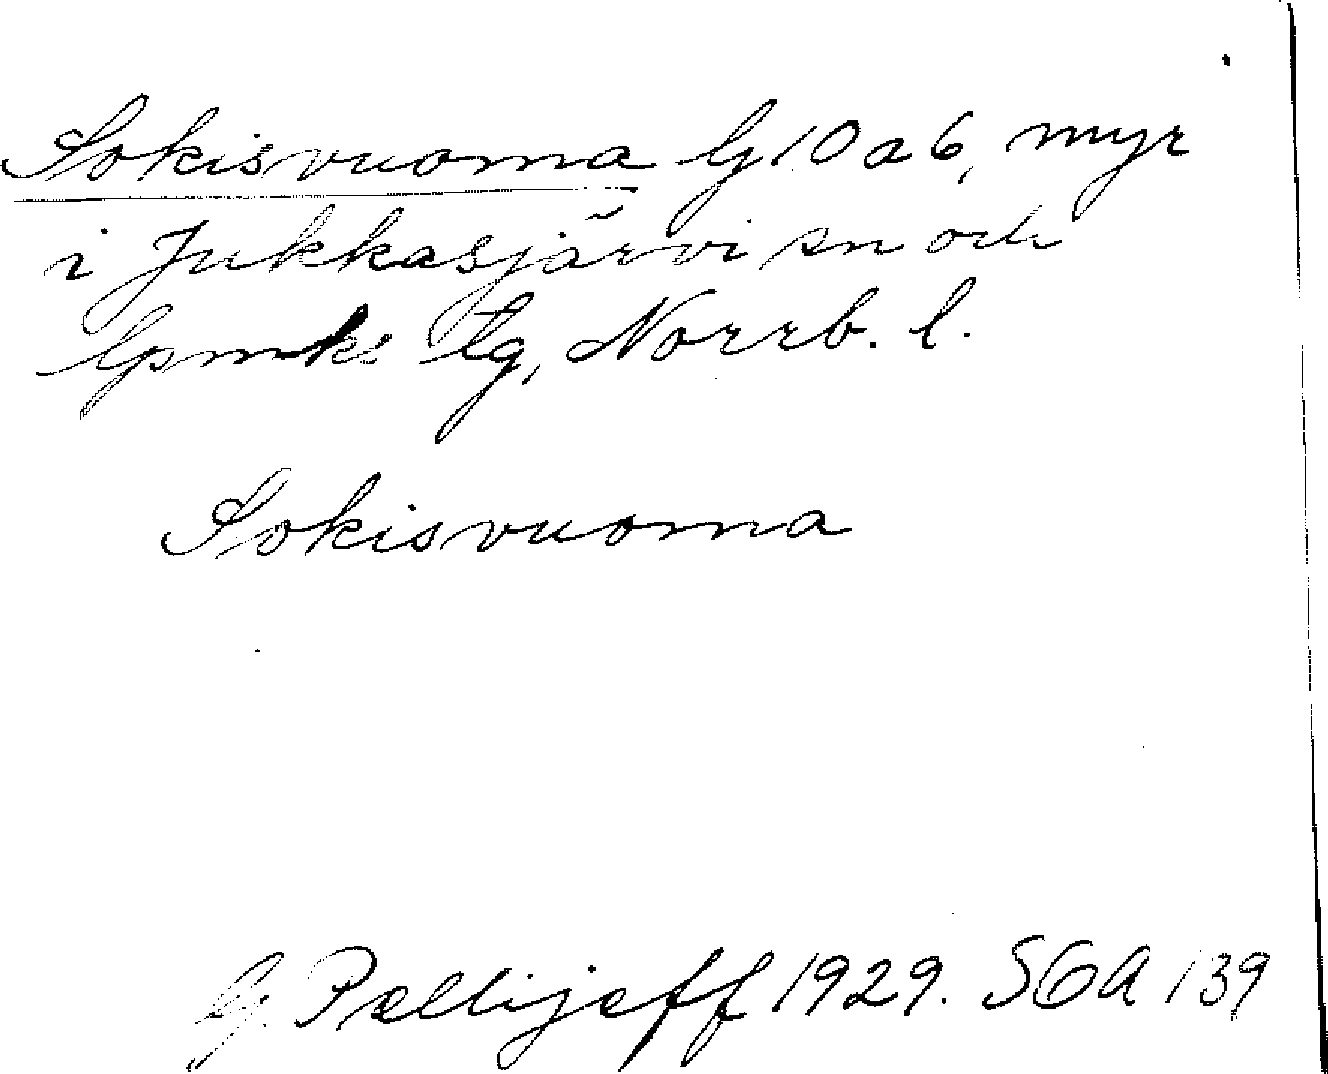 Sokisvuoma G 10 a 6, myr
i Jukkasjärvi sn och
lpmks tg, Norrb. l.
Sokisvuoma
G. Pellijeff 1929. SGA 139